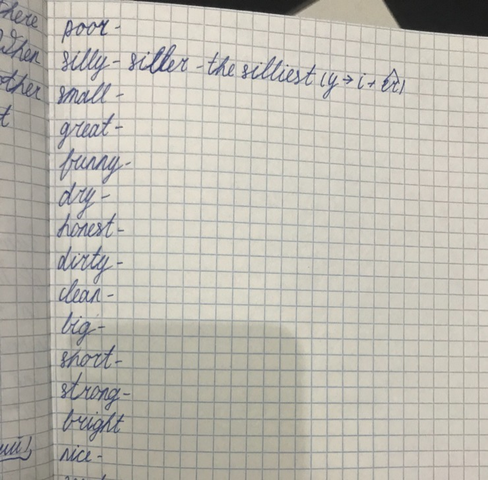 there
When
other
t
poor-
silly- siller - the silliest (y→i+er)
small -
great-
funny-
dry-
honest-
dirty-
clean-
big-
short-
strong-
bright
nice-